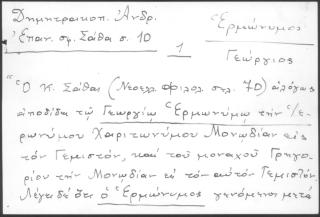 Δημητρακοπ. Ἀνδρ.
Ἐπαν. σφ. Σάθα σ. 10
Ἑρμώνυμος
Γεώργιος
1
"Ὁ Κ. Σάθας (Νεοελλ. φιλολ. σελ. 70) ἀλόγως
ἀποδίδει τῷ Γεωργίῳ Ἑρμωνύμῳ τὴν Ἱε-
ρωνύμου Χαριτωνύμου Μονωδίαν εἰς
τὸν Γεμιστόν, καὶ τοῦ μοναχοῦ Γρηγο-
ρίου τὴν Μονωδίαν εἰς τὸν αὐτὸν Γεμιστόν.
Λέγει δὲ ὅτι ὁ Ἑρμώνυμος γενόμενος μετὰ